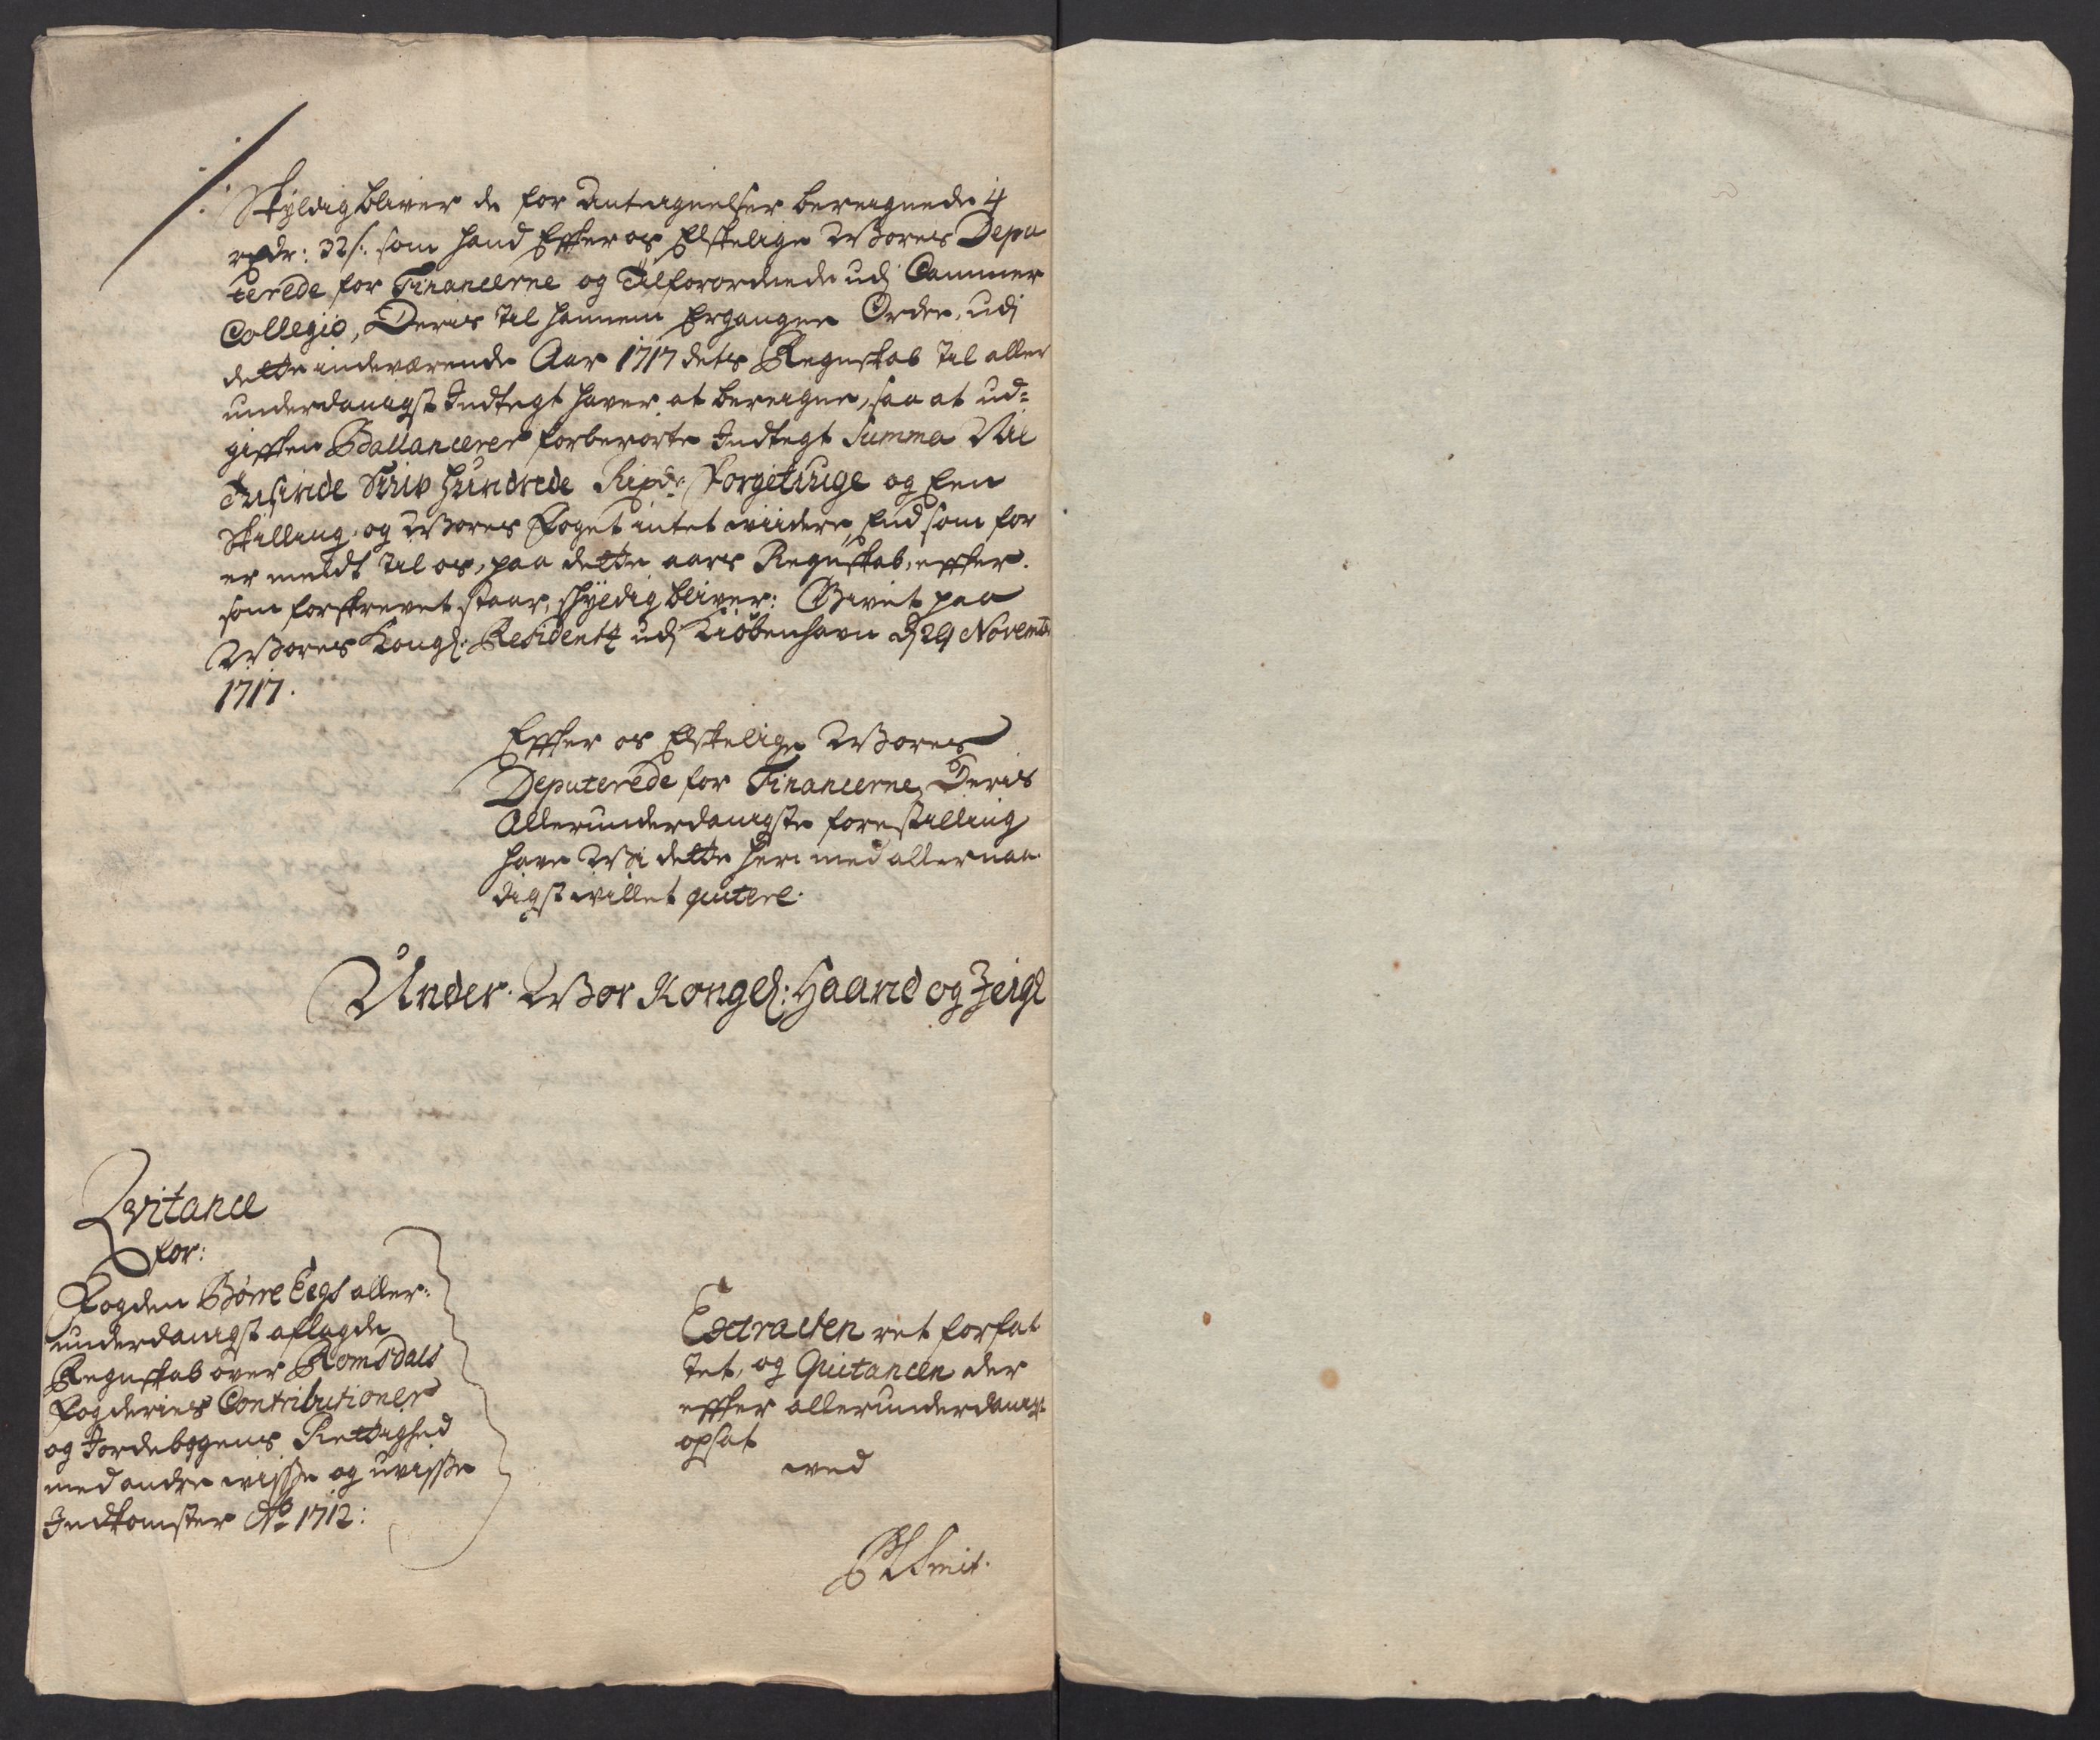 Skyldig bliver de for Anteignelser bereignede 4
rxdr: 32 s. som hand Effter os Elskelige Wores Depu
terede for Financerne og Tilforordnede udj Cammer
Collegio, Deris til hannem Ergangne Ordre, udj
dette indeværende Aar 1717 dets Regnskab til aller
underdanigst Indtegt haver at bereigne, saa at ud=
gifften Ballancerer forberørte Indtegt Summa
Tusinde Hundrede Rixdr. Førgetiuge og Een
Skilling, og Wores Foget intet viidere, End som for
er meldt til os, paa dette aars Regnskab, effter
som forskrevet staar, schyldig bliver: Givet paa
Wores Kongl: Residentz udj Kiøbenhavn d 29 Novemb
1717.
Effter os Elskelige Wores
Deputerede for Financerne, Deris
Allerunderdanigste forestilling
have Wi dette heri med allernaa
digst villet qvitere.
Under Wor Kongel: Haand og Zeigl
Qvitance
for:
Fogden Børre Eegs aller:
underdanigst aflagde
Regnskab over Romsdals
Fogderies Contributioner
og Jordebogens Rettighed
med andre visse og uvisse
Indkomster Ao 1712:
Extracten ret forfat
tet, og Qvitancen der
effter allerunderdanigst
opsat
ved
Smit.